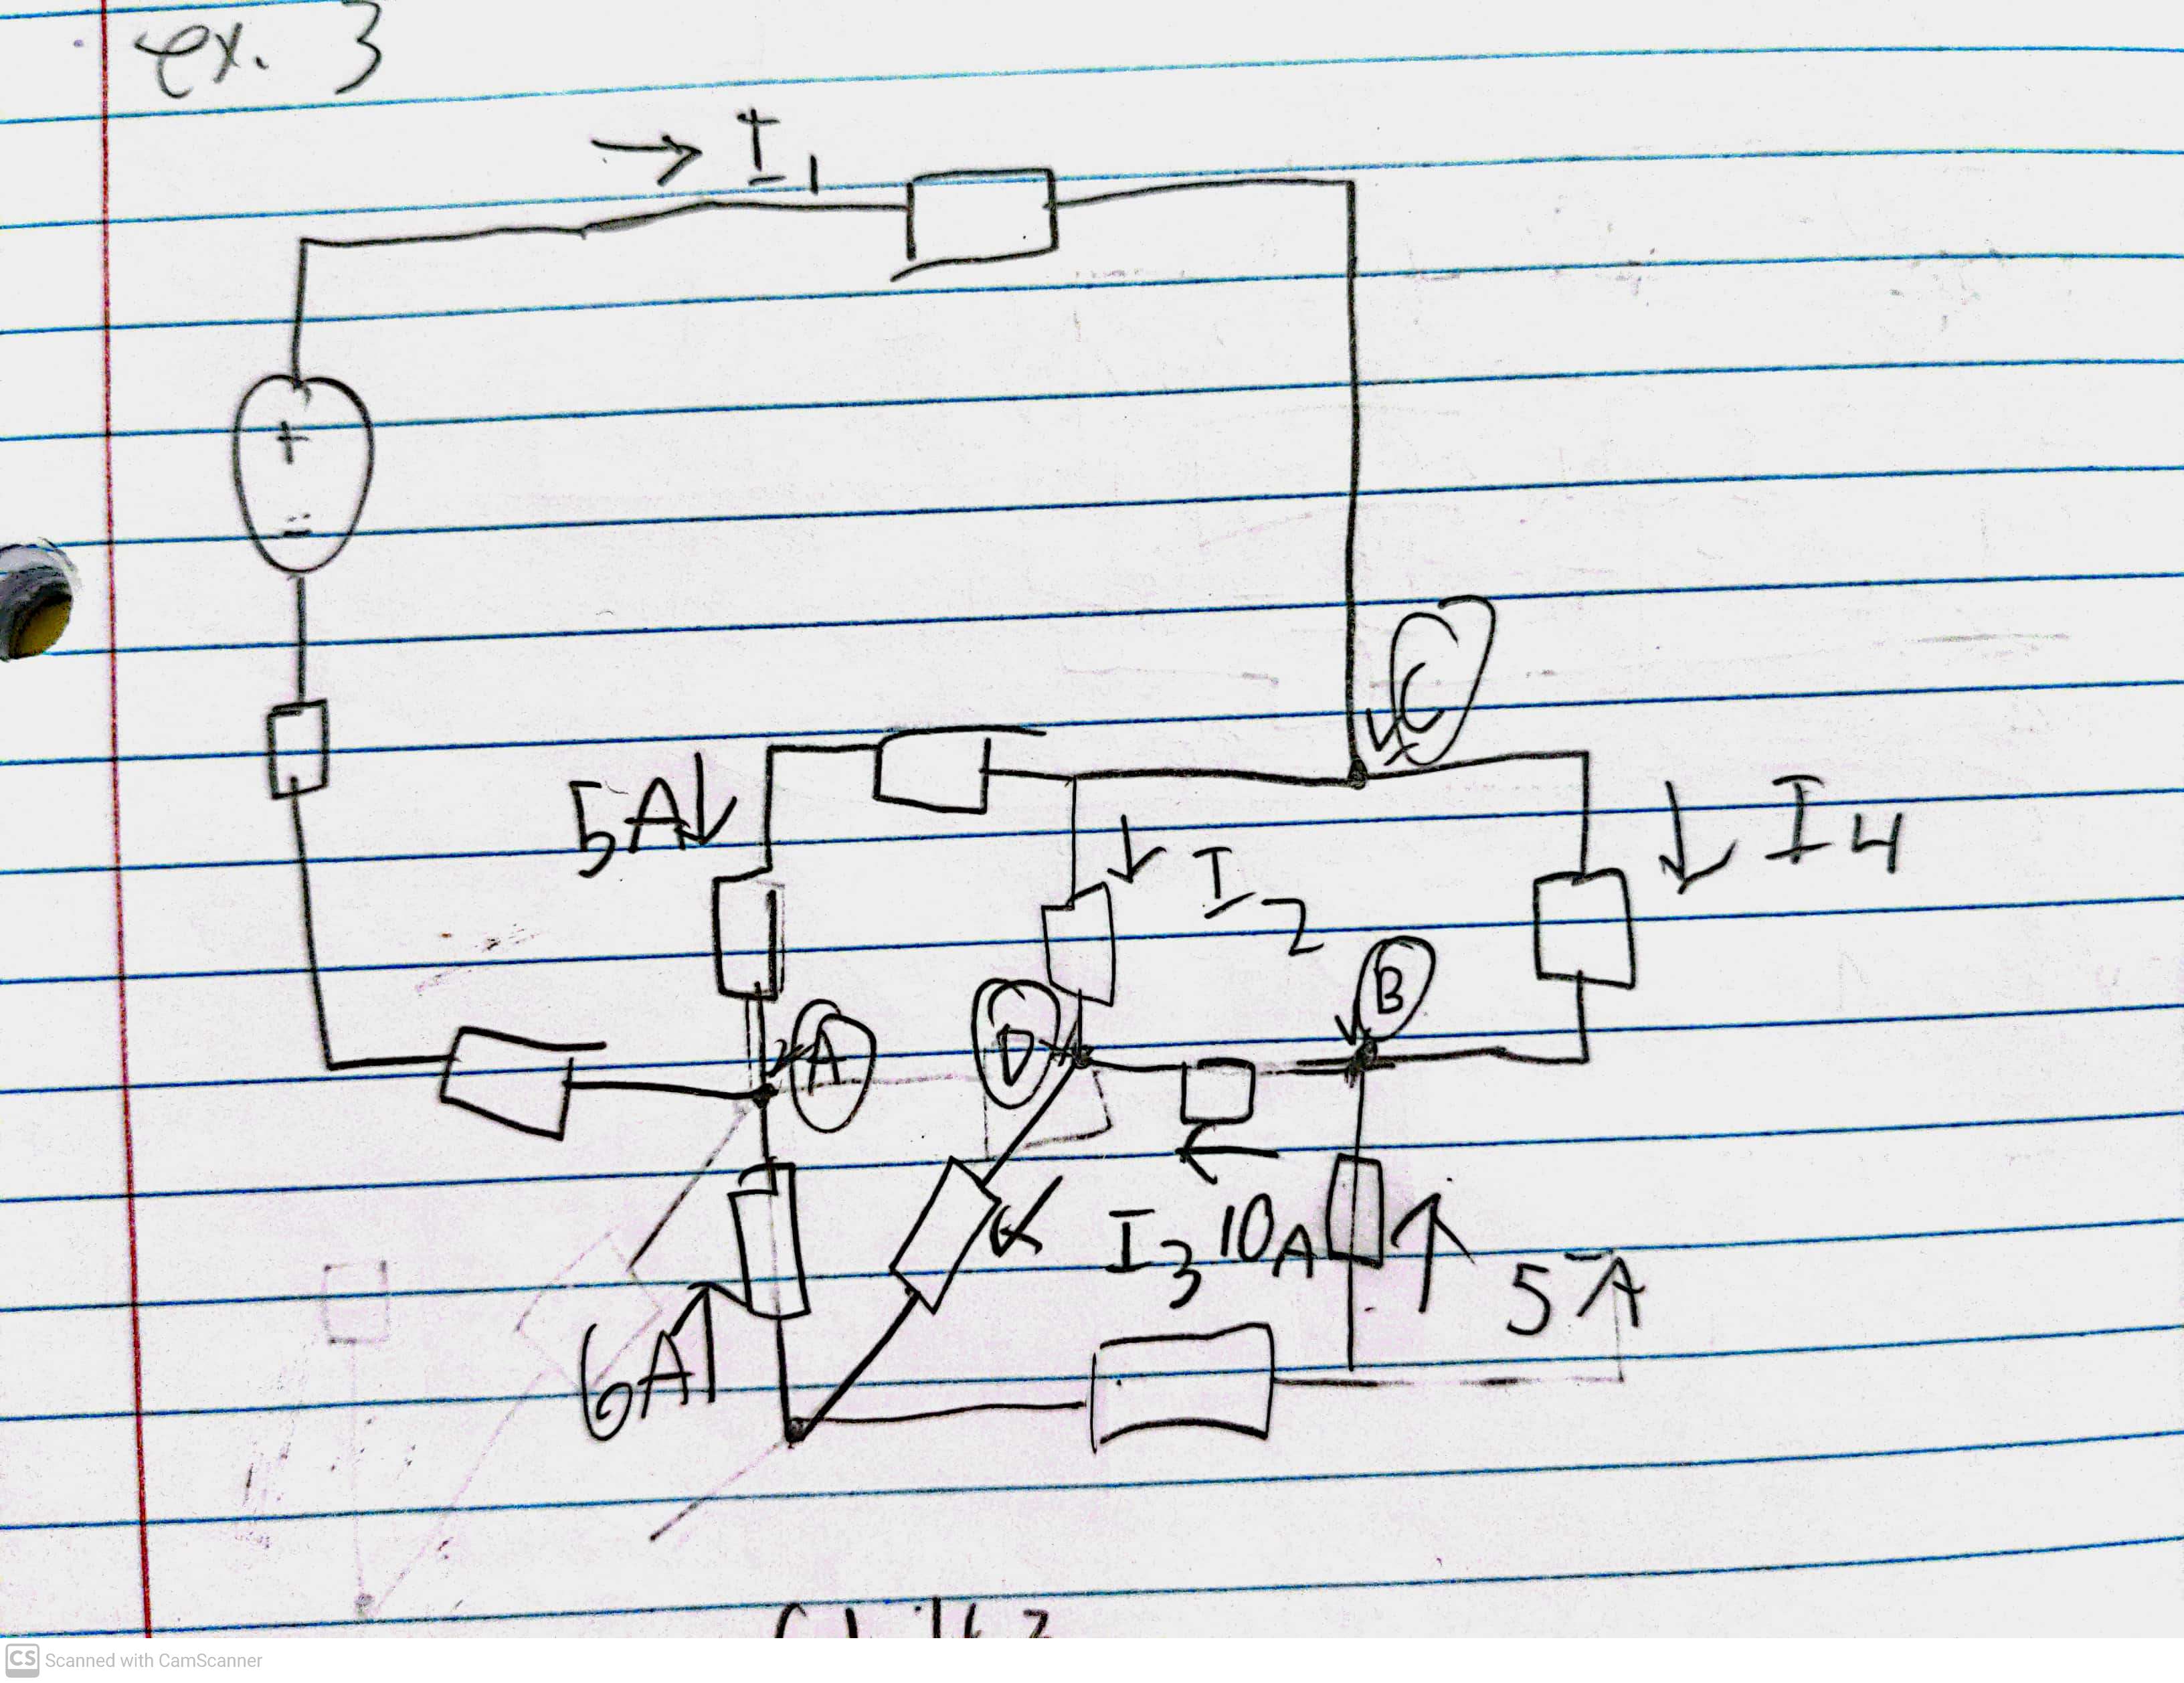 ex. 3
→ I1
C
5A↓
↓ I2
↓ I4
B
A
D
←
I3 10A
↑ 5A
6A↑
CS Scanned with CamScanner